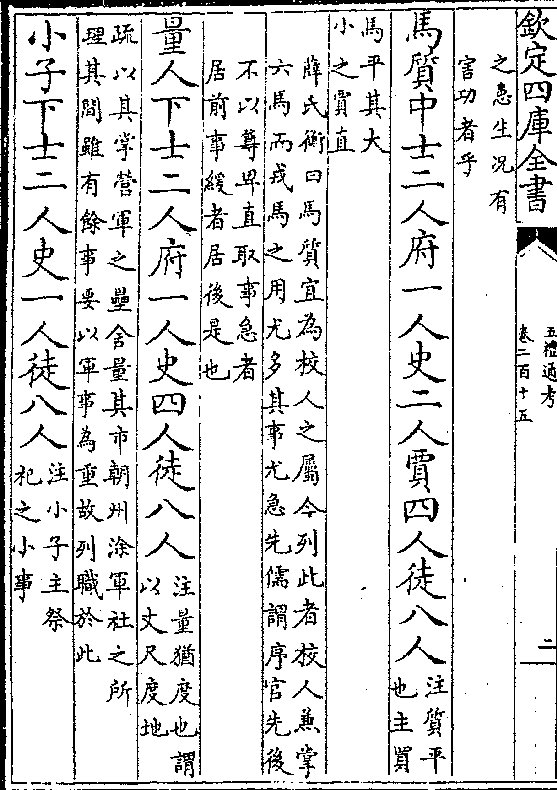 欽定四庫全書
五禮通考
卷二百十五
二
之患生况有
害功者乎
馬質中士二人府一人史二人賈四人徒八人
注質平
也主買
馬平其大
小之賈直
薛氏衡曰馬質宜為校人之屬今列此者校人兼掌
六馬而戎馬之用尤多其事尤急先儒謂序官先後
不以尊卑直取事急者
居前事緩者居後是也
量人下士二人府一人史四人徒八人
注量猶度也謂
以丈尺度地
疏以其掌營軍之壘舍量其市朝州涂軍社之所
理其間雖有餘事要以軍事為重故列職於此
小子下士二人史一人徒八人
注小子主祭
祀之小事